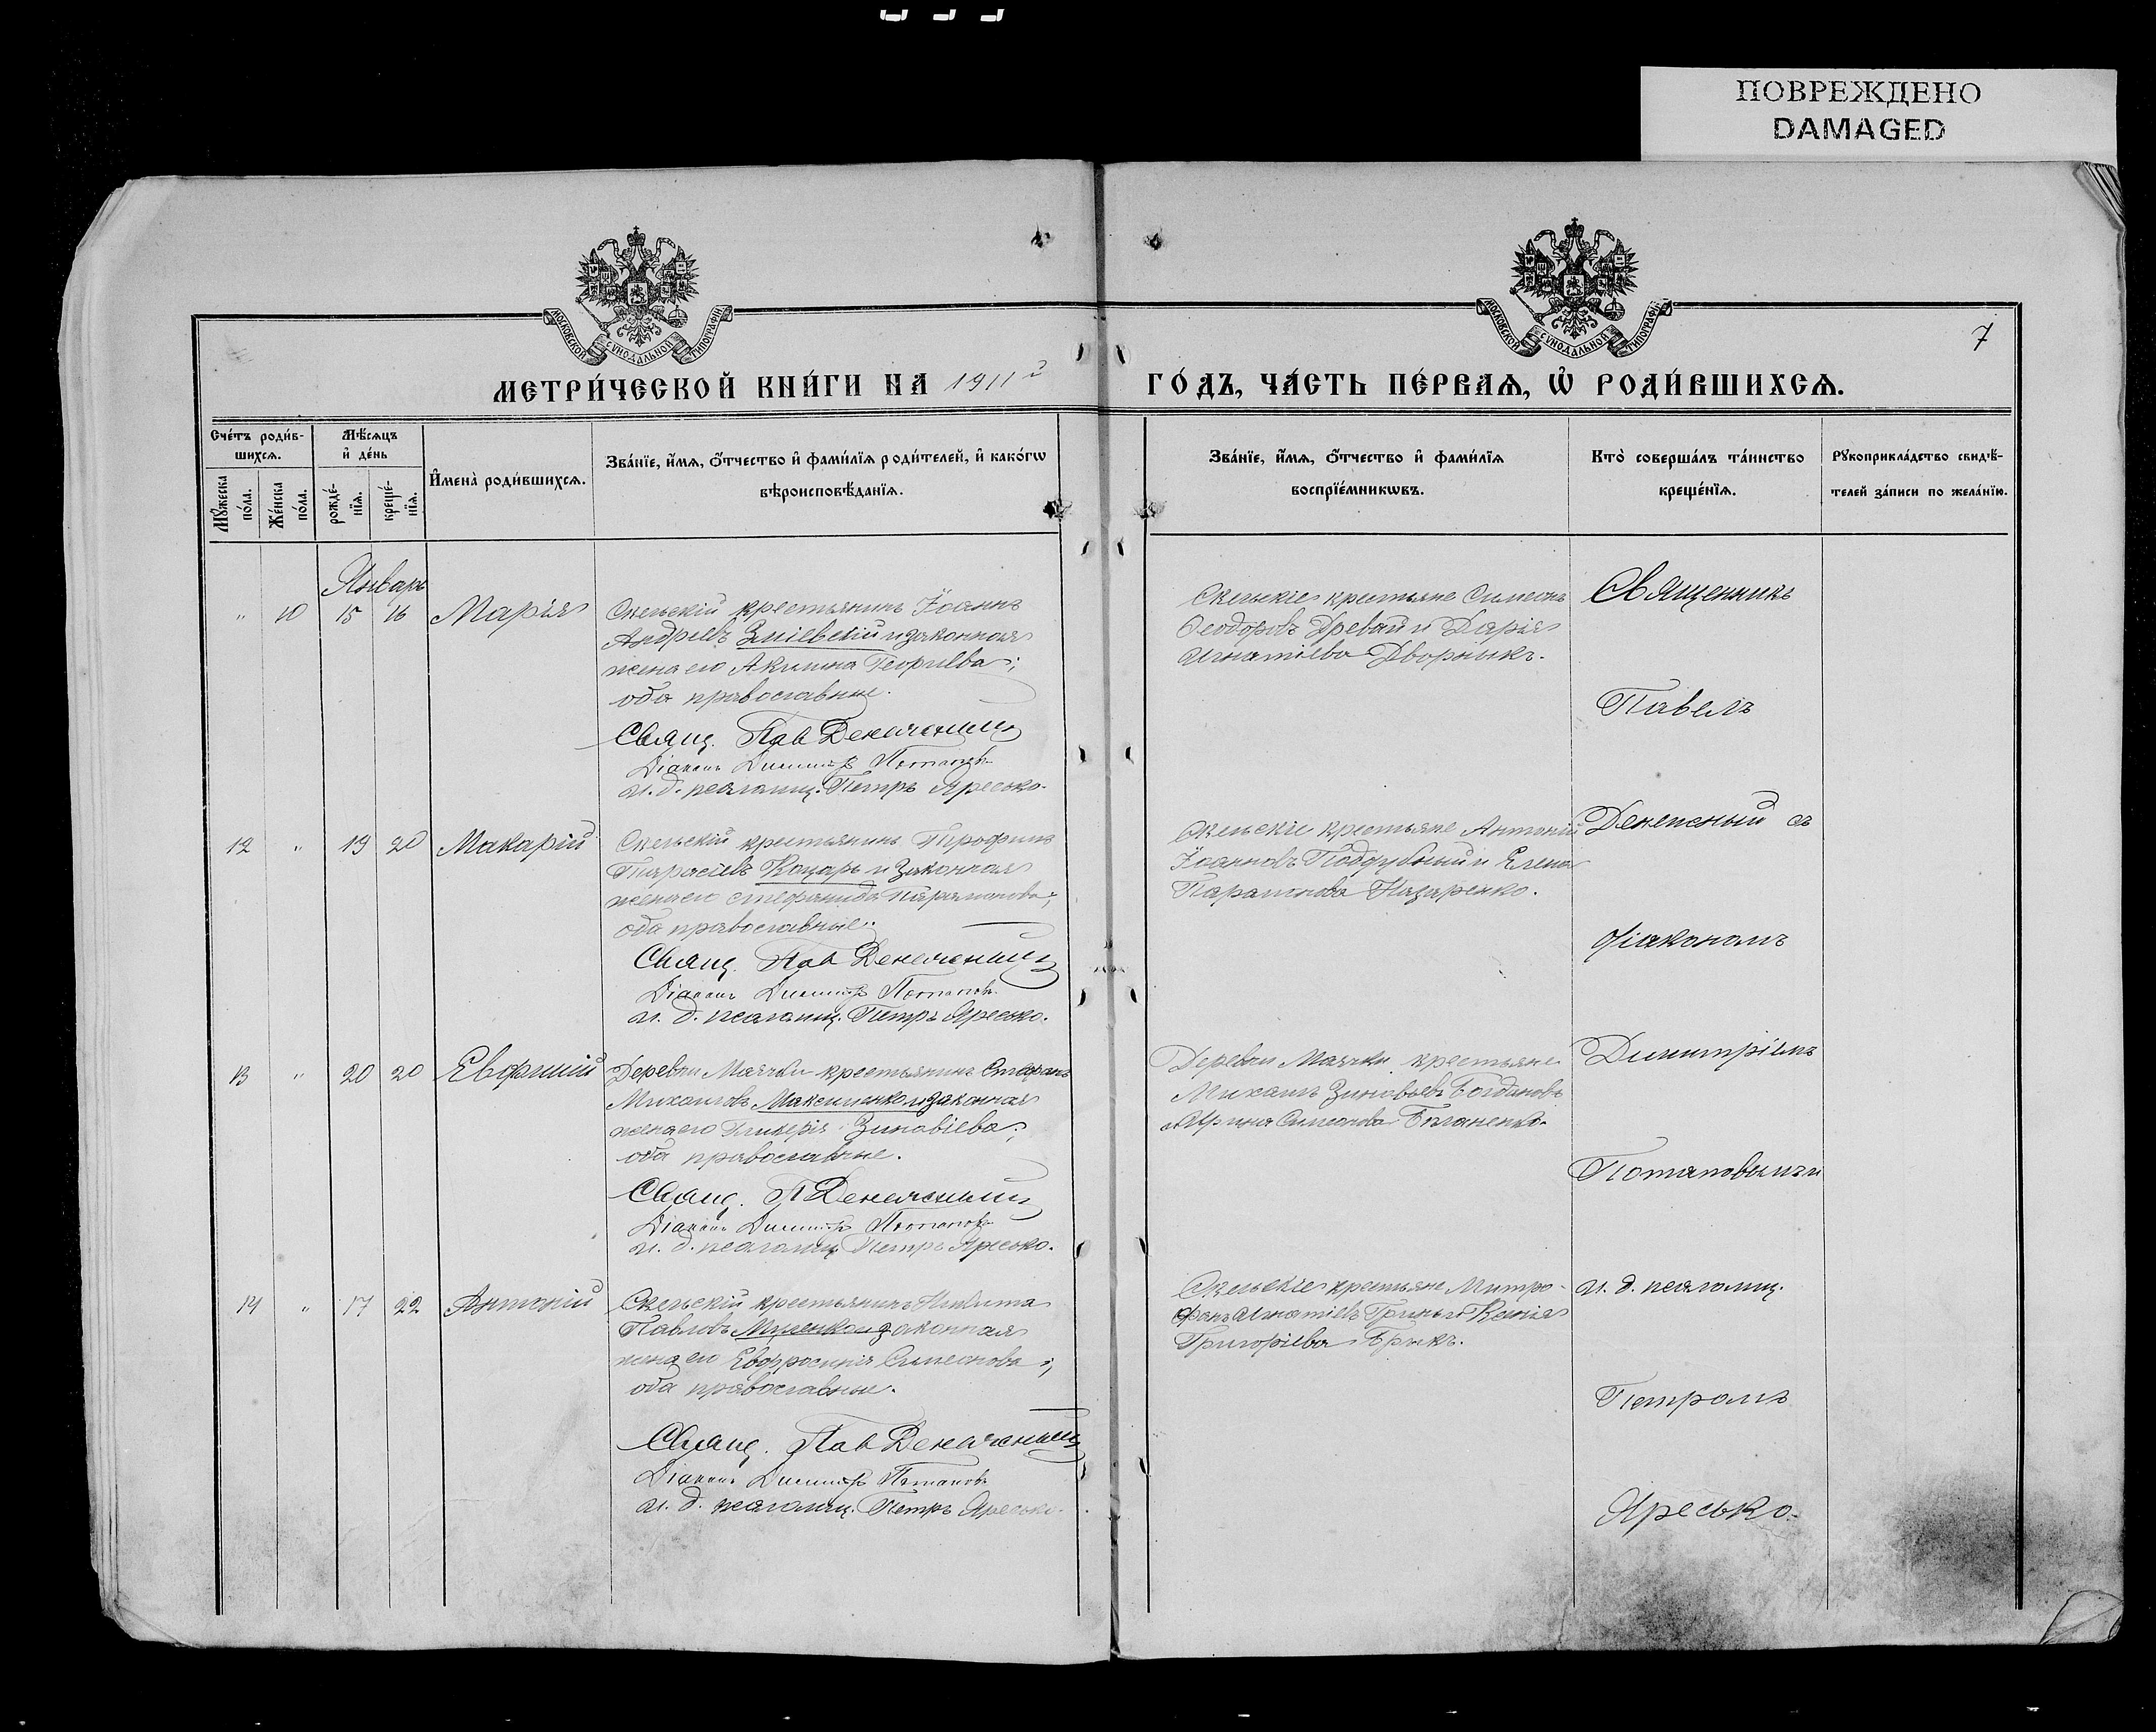 ПОВРЕЖДЕНО
DAMAGED
МОСКОВСКОЙ СѴНОДАЛЬНОЙ ТИПОГРАФІИ
МОСКОВСКОЙ СѴНОДАЛЬНОЙ ТИПОГРАФІИ
7
МЕТРИ́ЧЕСКОЙ КНИ́ГИ НА 1911 й
ГО́ДЪ, ЧА́СТЬ ПЕ́РВАѦ, Ѡ҆ РОДИ́ВШИХСѦ.
Сче́тъ роди́в-
шихсѧ.
Мꙋ́жеска по́ла.
Же́нска по́ла.
Мѣ́сѧцъ
и҆ де́нь
рожде́-
нїѧ.
креще́-
нїѧ.
И҆мена̀ роди́вшихсѧ.
Зва́нїе, и҆́мѧ, ѻ҆́тчество и҆ фами́лїѧ роди́телей, и҆ како́гѡ
вѣроисповѣ́данїѧ.
Зва́нїе, и҆́мѧ, ѻ҆́тчество и҆ фами́лїѧ
воспрїе́мникѡвъ.
Кто̀ соверша́лъ та́инство
креще́нїѧ.
Рꙋкоприкла́дство свидѣ́-
телей за́писи по жела́нїю.
Январь
" 10 15 16 Марія
Скельскій крестьянинъ Іоаннъ
Андреевъ Зміевскій и законная
жена его Акилина Георгіева;
оба православные.
Свящ. Пав Денеженный
Діаконъ Димитрій Потаповъ
и. д. псаломщ. Петръ Яресько.
Скельскіе крестьяне Симеонъ
Ѳеодоровъ Древай и Дарія
Игнатіева Дворникъ.
Священникъ
Павелъ
12 " 19 20 Макарій
Скельскій крестьянинъ Трофимъ
Тарасіевъ Коцарь и законная
жена его Стефанида Парамонова;
оба православные.
Свящ. Пав Денеженный
Діаконъ Димитрій Потаповъ
и. д. псаломщ. Петръ Яресько.
Скельскіе крестьяне Антоній
Іоанновъ Поддубный и Елена
Парамонова Назаренко.
Денеженный съ
діакономъ
13 " 20 20 Евфимій
Деревни Маячки крестьянинъ Стефанъ
Михаиловъ Максименко и законная
жена его Гликерія Зиновіева;
оба православные.
Свящ. П Денеженный
Діаконъ Димитрій Потаповъ
и. д. псаломщ. Петръ Яресько.
Деревни Маячки крестьяне
Михаилъ Зиновьевъ Богдановъ
и Ирина Симеонова
Димитріемъ
Потаповымъ и
14 " 17 22 Антоній
Скельскій крестьянинъ Никита
Павловъ Мусенко и законная
жена его Евфросинія Симеонова;
оба православные.
Свящ. Пав Денеженный
Діаконъ Димитрій Потаповъ
и. д. псаломщ. Петръ Яресько.
Скельскіе крестьяне Митро-
фанъ Игнатіевъ Гринь и Ксенія
Григоріева Брикъ.
и. д. псаломщ.
Петромъ
Яресько.